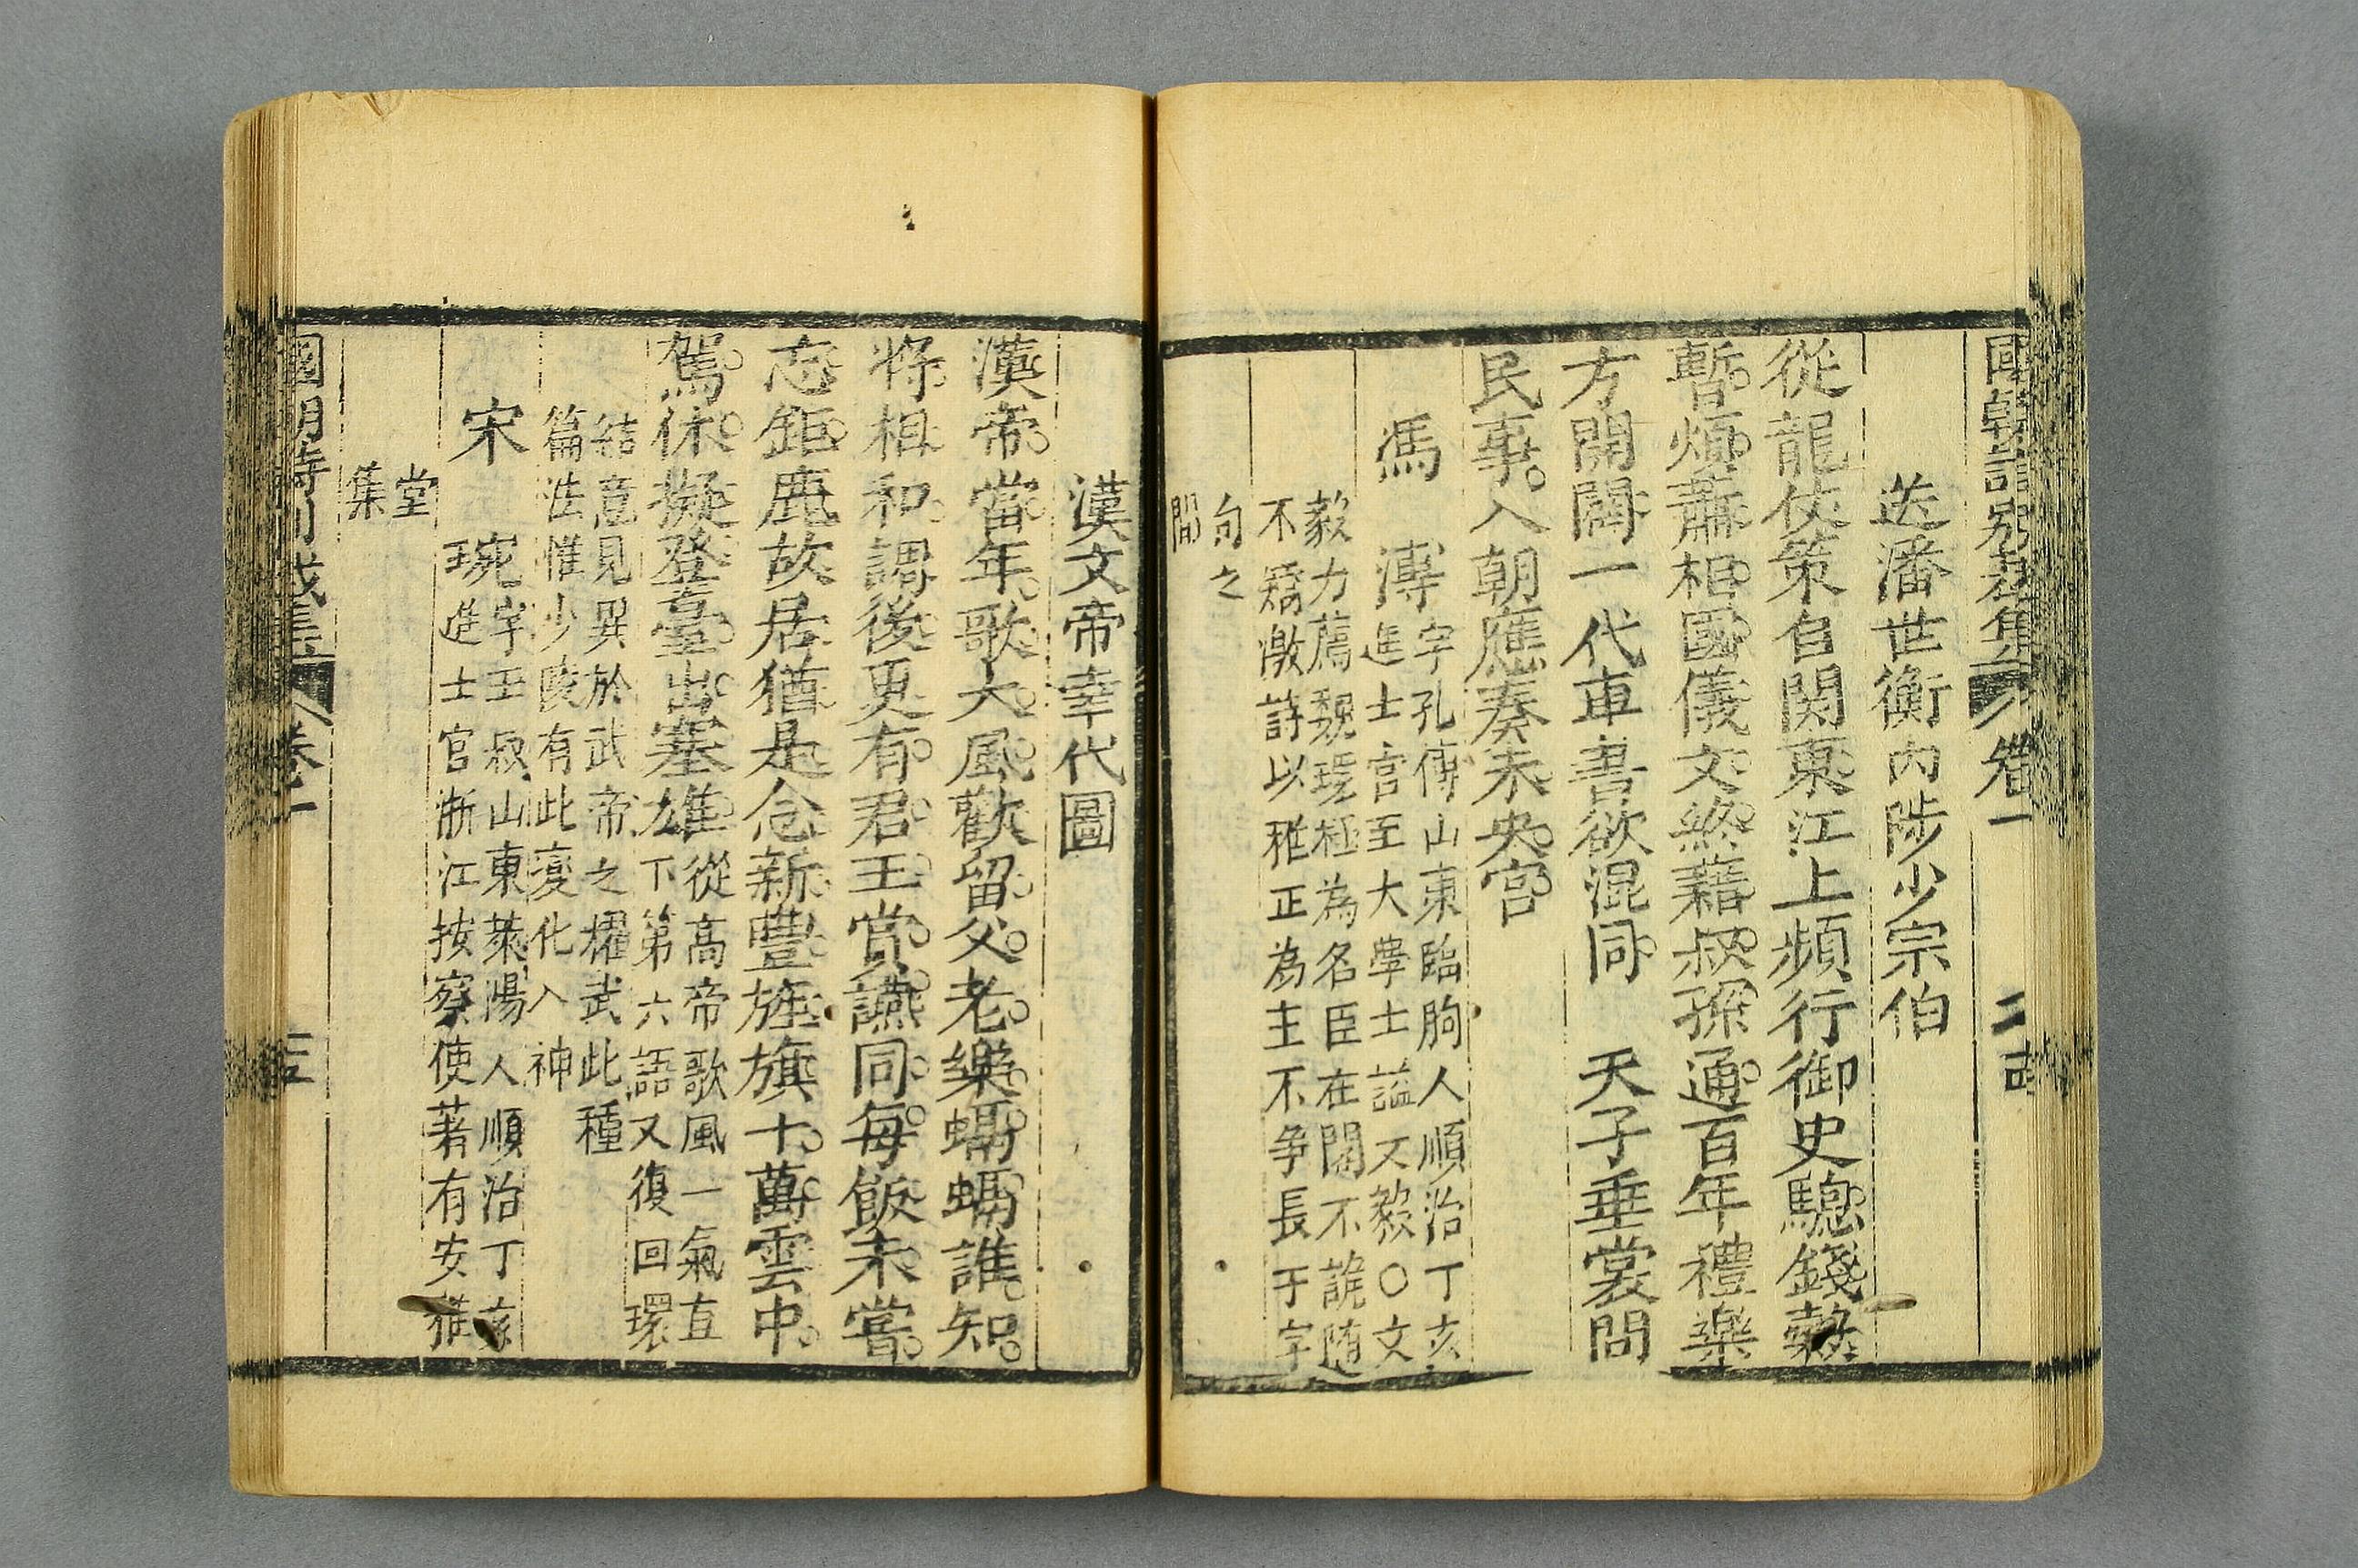 送潘世衡内陟少宗伯
從龍仗策自関東江上頻行御史驄錢穀
暫煩蕭相國儀文終藉叔孫通百年禮樂
方開闢一代車書欲混同　天子垂裳問
民事入朝應奏未央宮
馮
溥
字孔傳山東臨朐人順治丁亥
進士官至大學士謚文毅〇文
毅力薦魏環極為名臣在閣不詭随
不矯激詩以雅正為主不争長于字
句之
間
漢文帝幸代圖
漢帝當年歌大風歡留父老樂蝺蝺誰知
將相和調後更有君王賞讌同每飯未嘗
忘鉅鹿故居猶是念新豐旌旗十萬雲中
駕休擬登臺出塞雄
從高帝歌風一氣直
下第六語又復回環
結意見異於武帝之櫂武此種
篇法惟少陵有此变化入神
宋
琬
字玉叔山東萊陽人順治丁亥
進士官浙江按察使著有安雅
堂
集
卷一
三